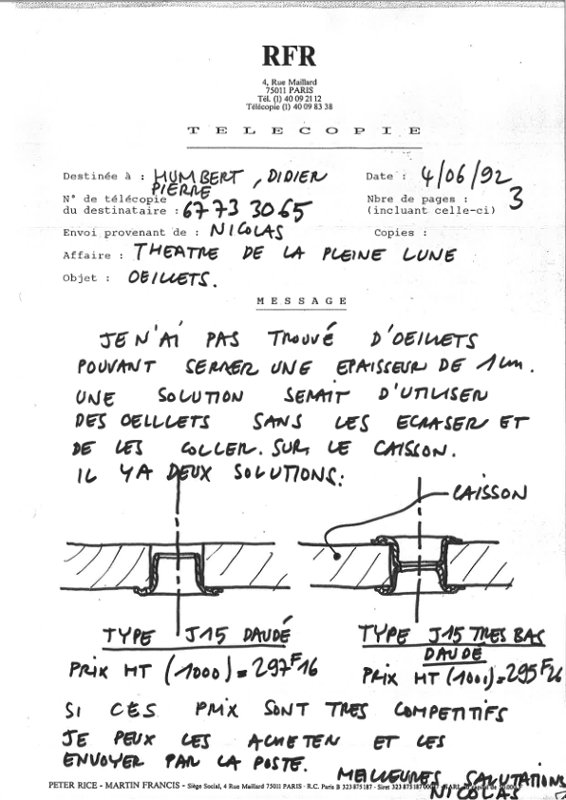 RFR
4, Rue Maillard
75011 PARIS
Tél. (1) 40 09 21 12
Télécopie (1) 40 09 83 38
TELECOPIE
Destinée à : HUMBERT, DIDIER
PIERRE
Date : 4/06/92
N° de télécopie
du destinataire : 67 73 30 65
Nbre de pages : 3
(incluant celle-ci)
Envoi provenant de : NICOLAS
Copies :
Affaire : THEATRE DE LA PLEINE LUNE
Objet : OEILLETS.
MESSAGE
JE N'AI PAS TROUVÉ D'OEILLETS
POUVANT SERRER UNE EPAISSEUR DE 1cm.
UNE SOLUTION SERAIT D'UTILISER
DES OEILLETS SANS LES ECRASER ET
DE LES COLLER. SUR LE CAISSON.
IL Y A DEUX SOLUTIONS:
CAISSON
TYPE J15 DAUDÉ
PRIX HT (1000) = 297F16
TYPE J15 TRES BAS
DAUDÉ
PRIX HT (1000) = 295F26
SI CES PRIX SONT TRES COMPETITIFS
JE PEUX LES ACHETER ET LES
ENVOYER PAR LA POSTE.
MEILLEURES SALUTATIONS
NICOLAS
PETER RICE - MARTIN FRANCIS - Siège Social, 4 Rue Maillard 75011 PARIS - R.C. Paris B 323 875 187 - Siret 323 875 187